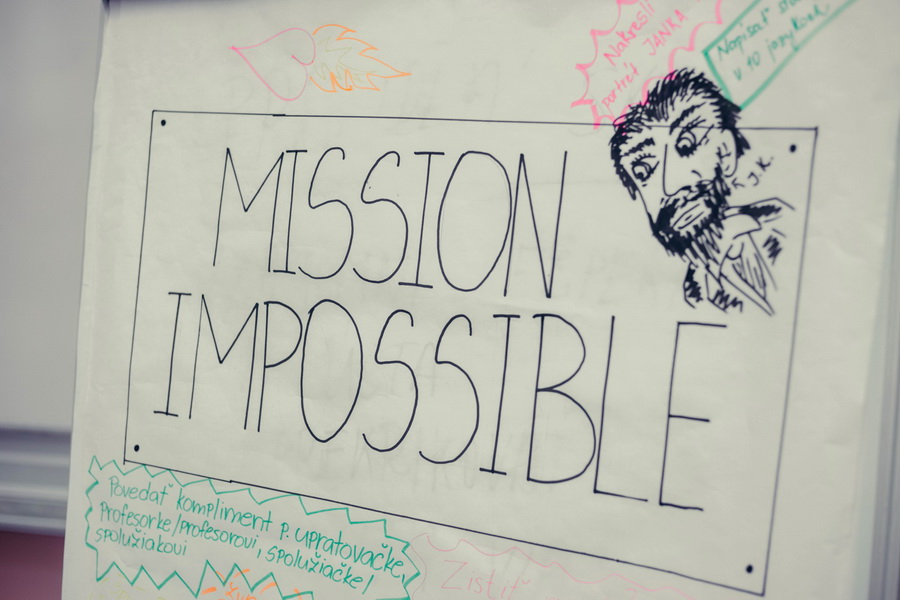 Nakresli
portrét JANKA
Napísať
v 10 jazykoch
J.K.
MISSION
IMPOSSIBLE
Povedať kompliment p. upratovačke,
Profesorke/profesorovi, spolužiačke/
spolužiakovi
Zistiť